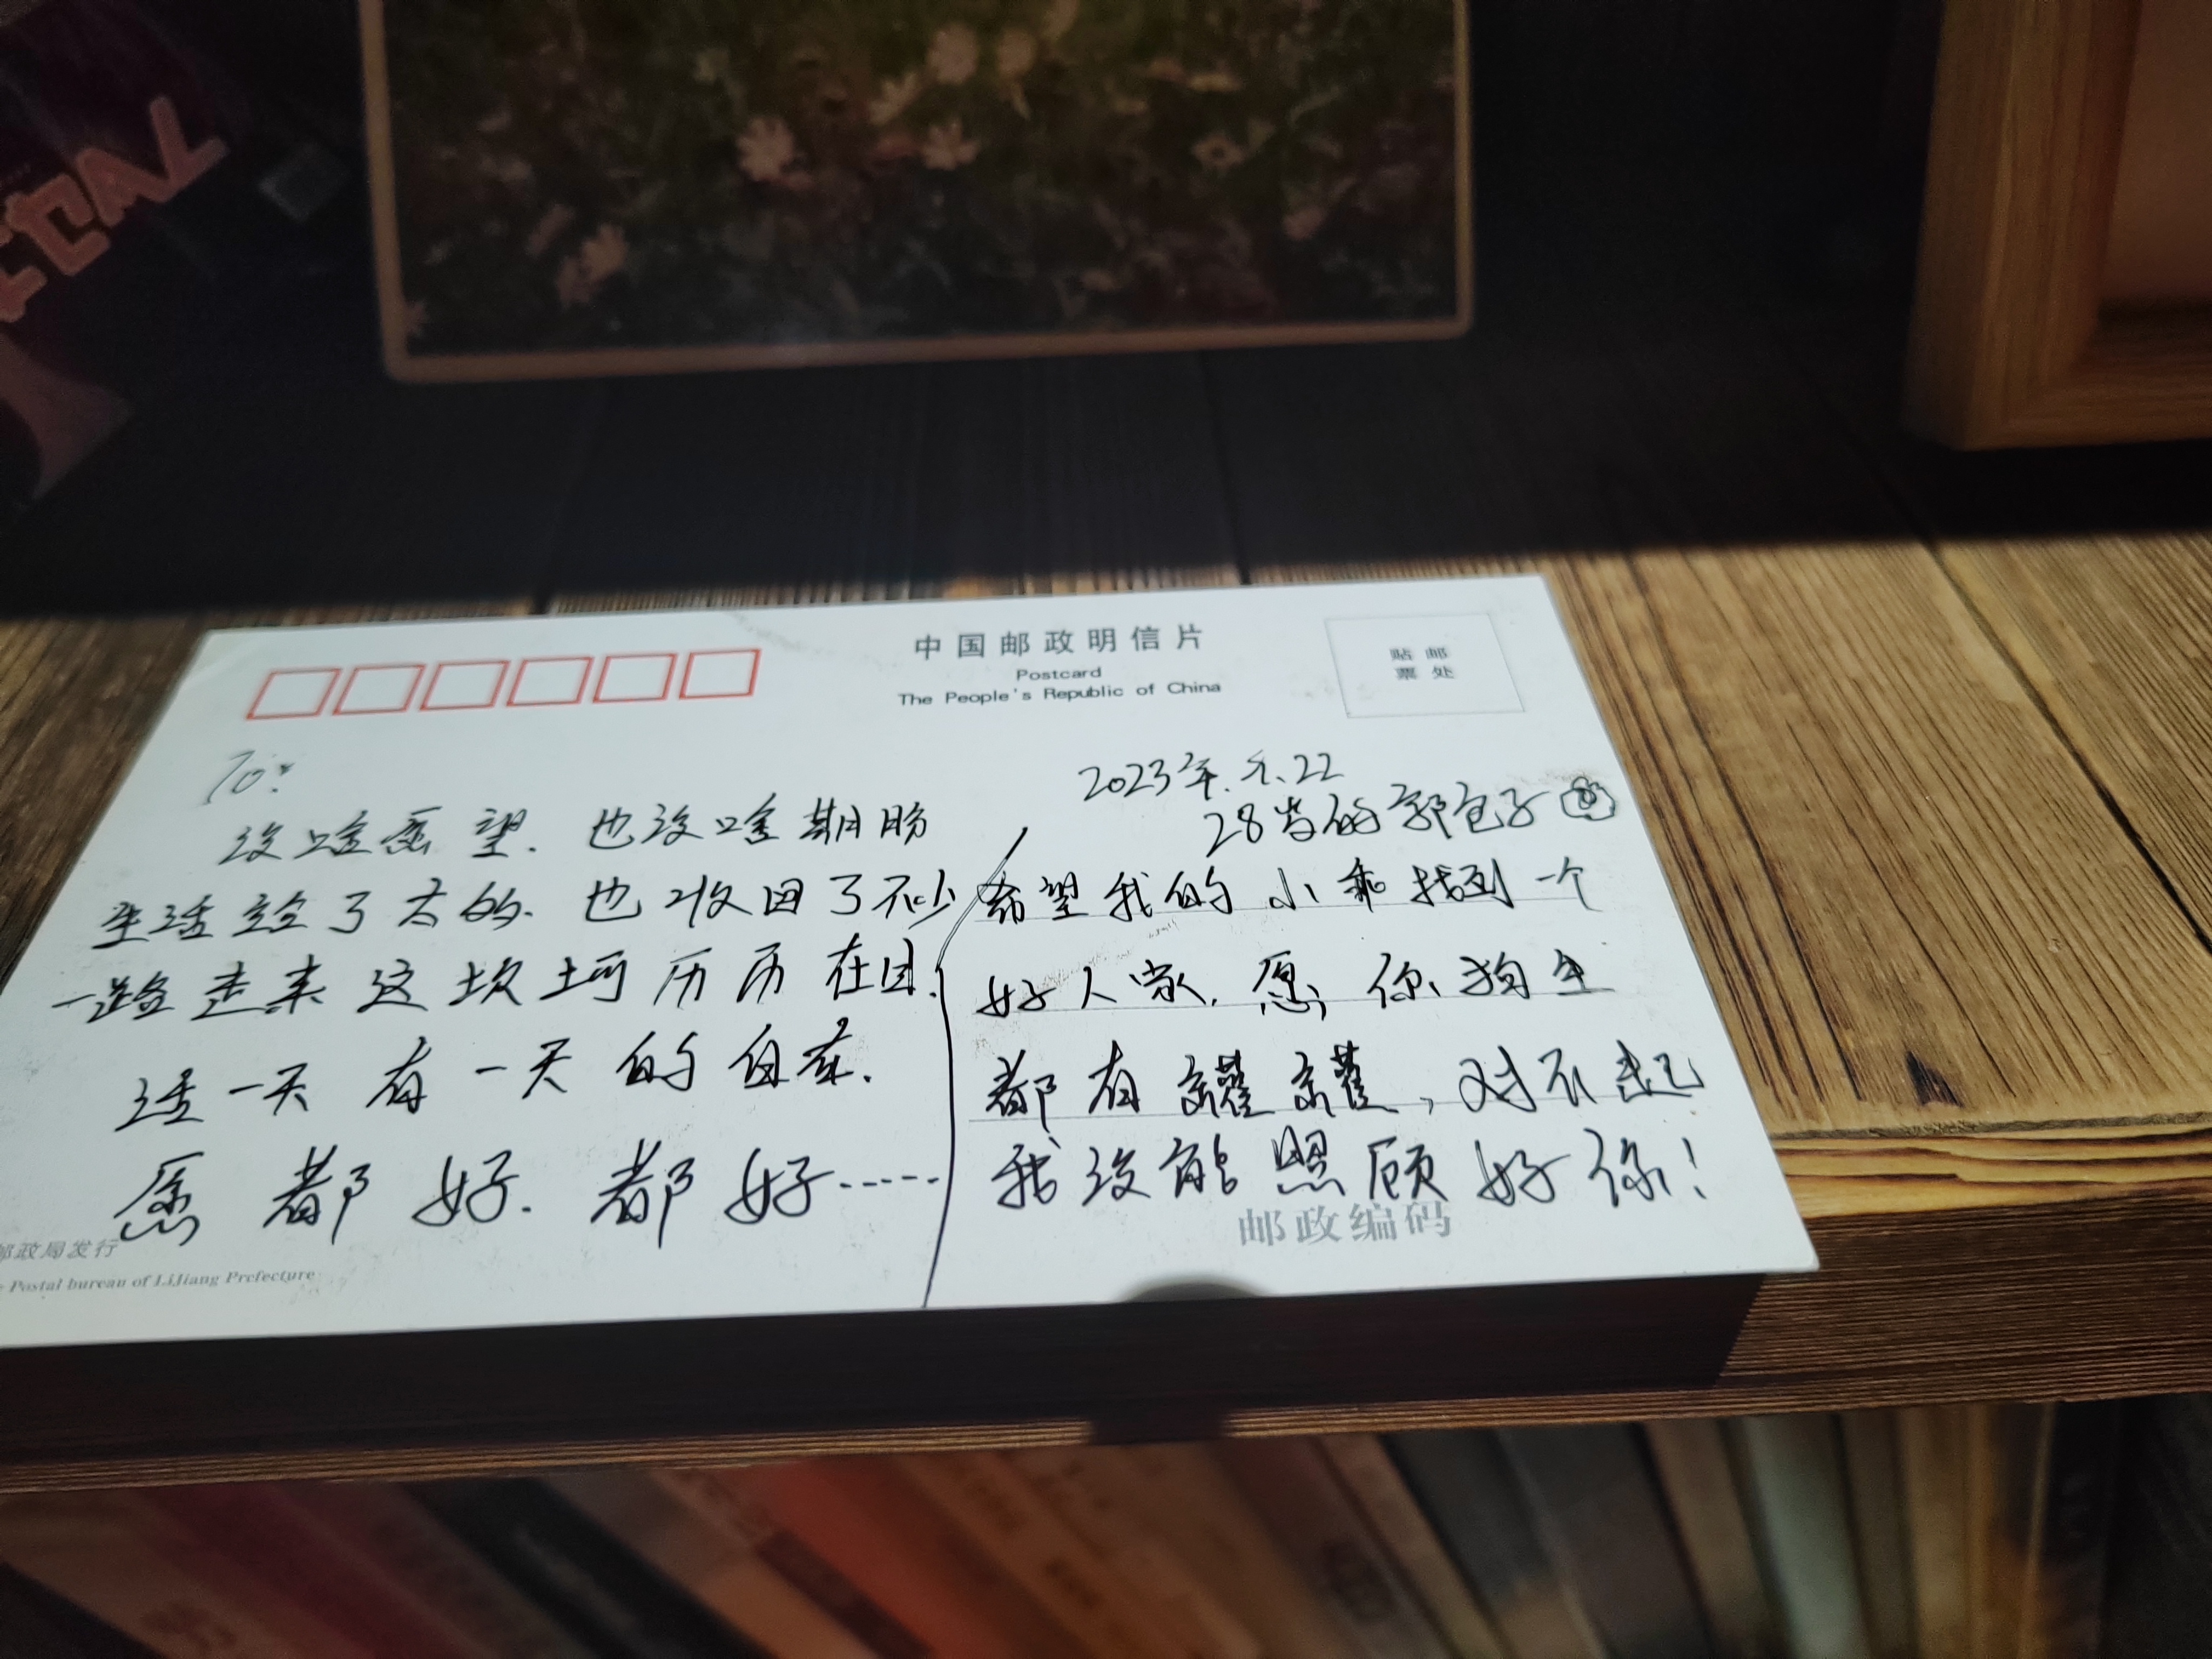 中国邮政明信片
Postcard
The People's Republic of China
贴邮
票处
To:
没啥愿望.也没啥期盼
生活给了太多.也收回了不少
一路走来这坎坷历历在目.
活一天有一天的自在.
愿都好.都好-----
2023年.5.22
28岁的郭包子
希望我的小乖找到一个
好人家.愿你狗生
都有罐罐,对不起
我没能照顾好你!
邮政编码
邮政局发行
Postal bureau of LiJiang Prefecture